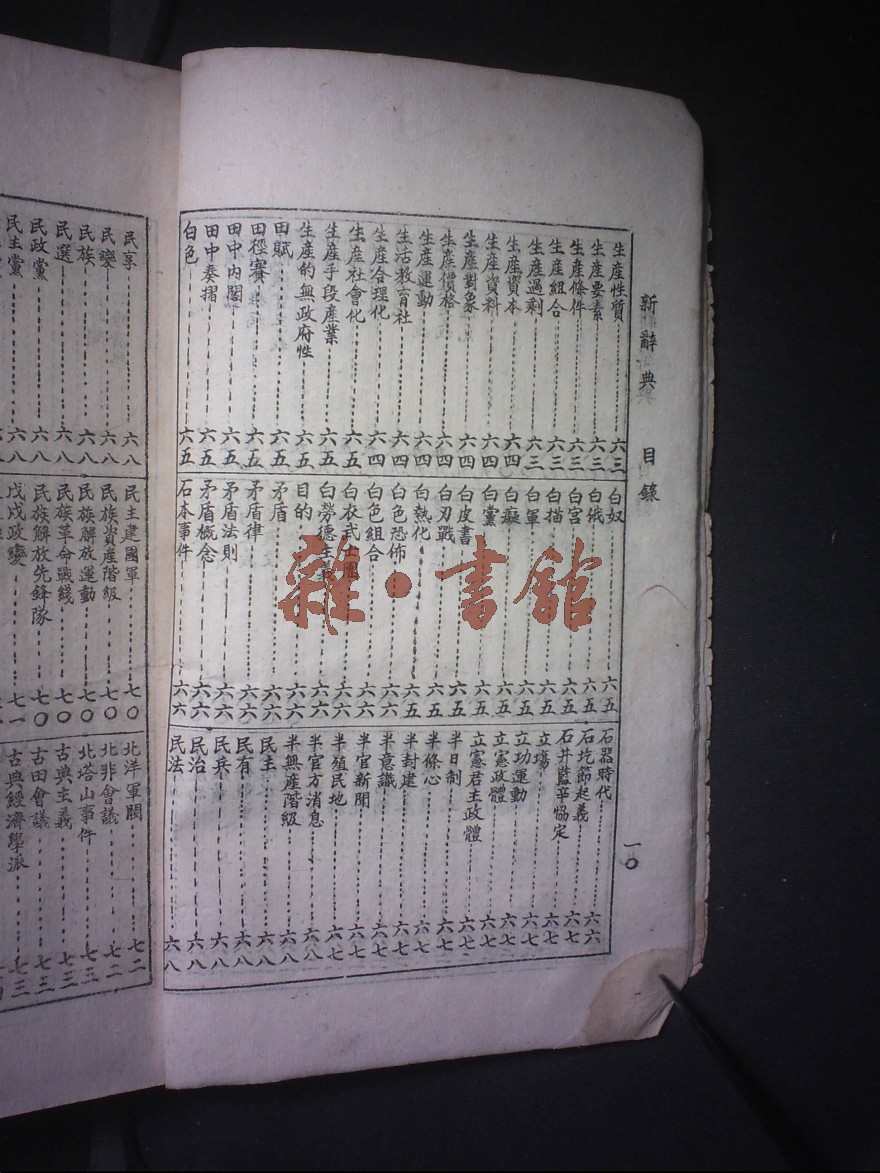 新辭典 目錄
一〇
生產性質 六三
生產要素 六三
生產條件 六三
生產組合 六三
生產過剩 六三
生產資本 六四
生產資料 六四
生產對象 六四
生產價格 六四
生產運動 六四
生活教育社 六四
生產合理化 六四
生產社會化 六五
生產手段產業 六五
生產的無政府性 六五
田賦 六五
田徑賽 六五
田中內閣 六五
田中奏摺 六五
白色 六五
白奴 六五
白俄 六五
白宮 六五
白描 六五
白軍 六五
白癡 六五
白黨 六五
白皮書 六五
白刃戰 六五
白熱化 六五
白色恐佈 六六
白色組合 六六
白衣武士團 六六
白勞德主義 六六
目的 六六
矛盾 六六
矛盾律 六六
矛盾法則 六六
矛盾概念 六六
石本事件 六六
石器時代 六六
石圪節起義 六七
石井藍辛協定 六七
立場 六七
立功運動 六七
立憲政體 六七
立憲君主政體 六七
半日制 六七
半條心 六七
半封建 六七
半意識 六七
半官新聞 六七
半殖民地 六七
半官方消息 六八
半無產階級 六八
民主 六八
民有 六八
民兵 六八
民治 六八
民法 六八
民享 六八
民變 六八
民族 六八
民選 六八
民政黨 六八
民主黨 六八
民主建國軍 七〇
民族資產階級 七〇
民族解放運動 七〇
民族革命戰綫 七〇
民族解放先鋒隊 七〇
戊戌政變 七一
北洋軍閥 七二
北非會議 七二
北塔山事件 七三
古典主義 七三
古田會議 七三
古典經濟學派 七三
雜·書館